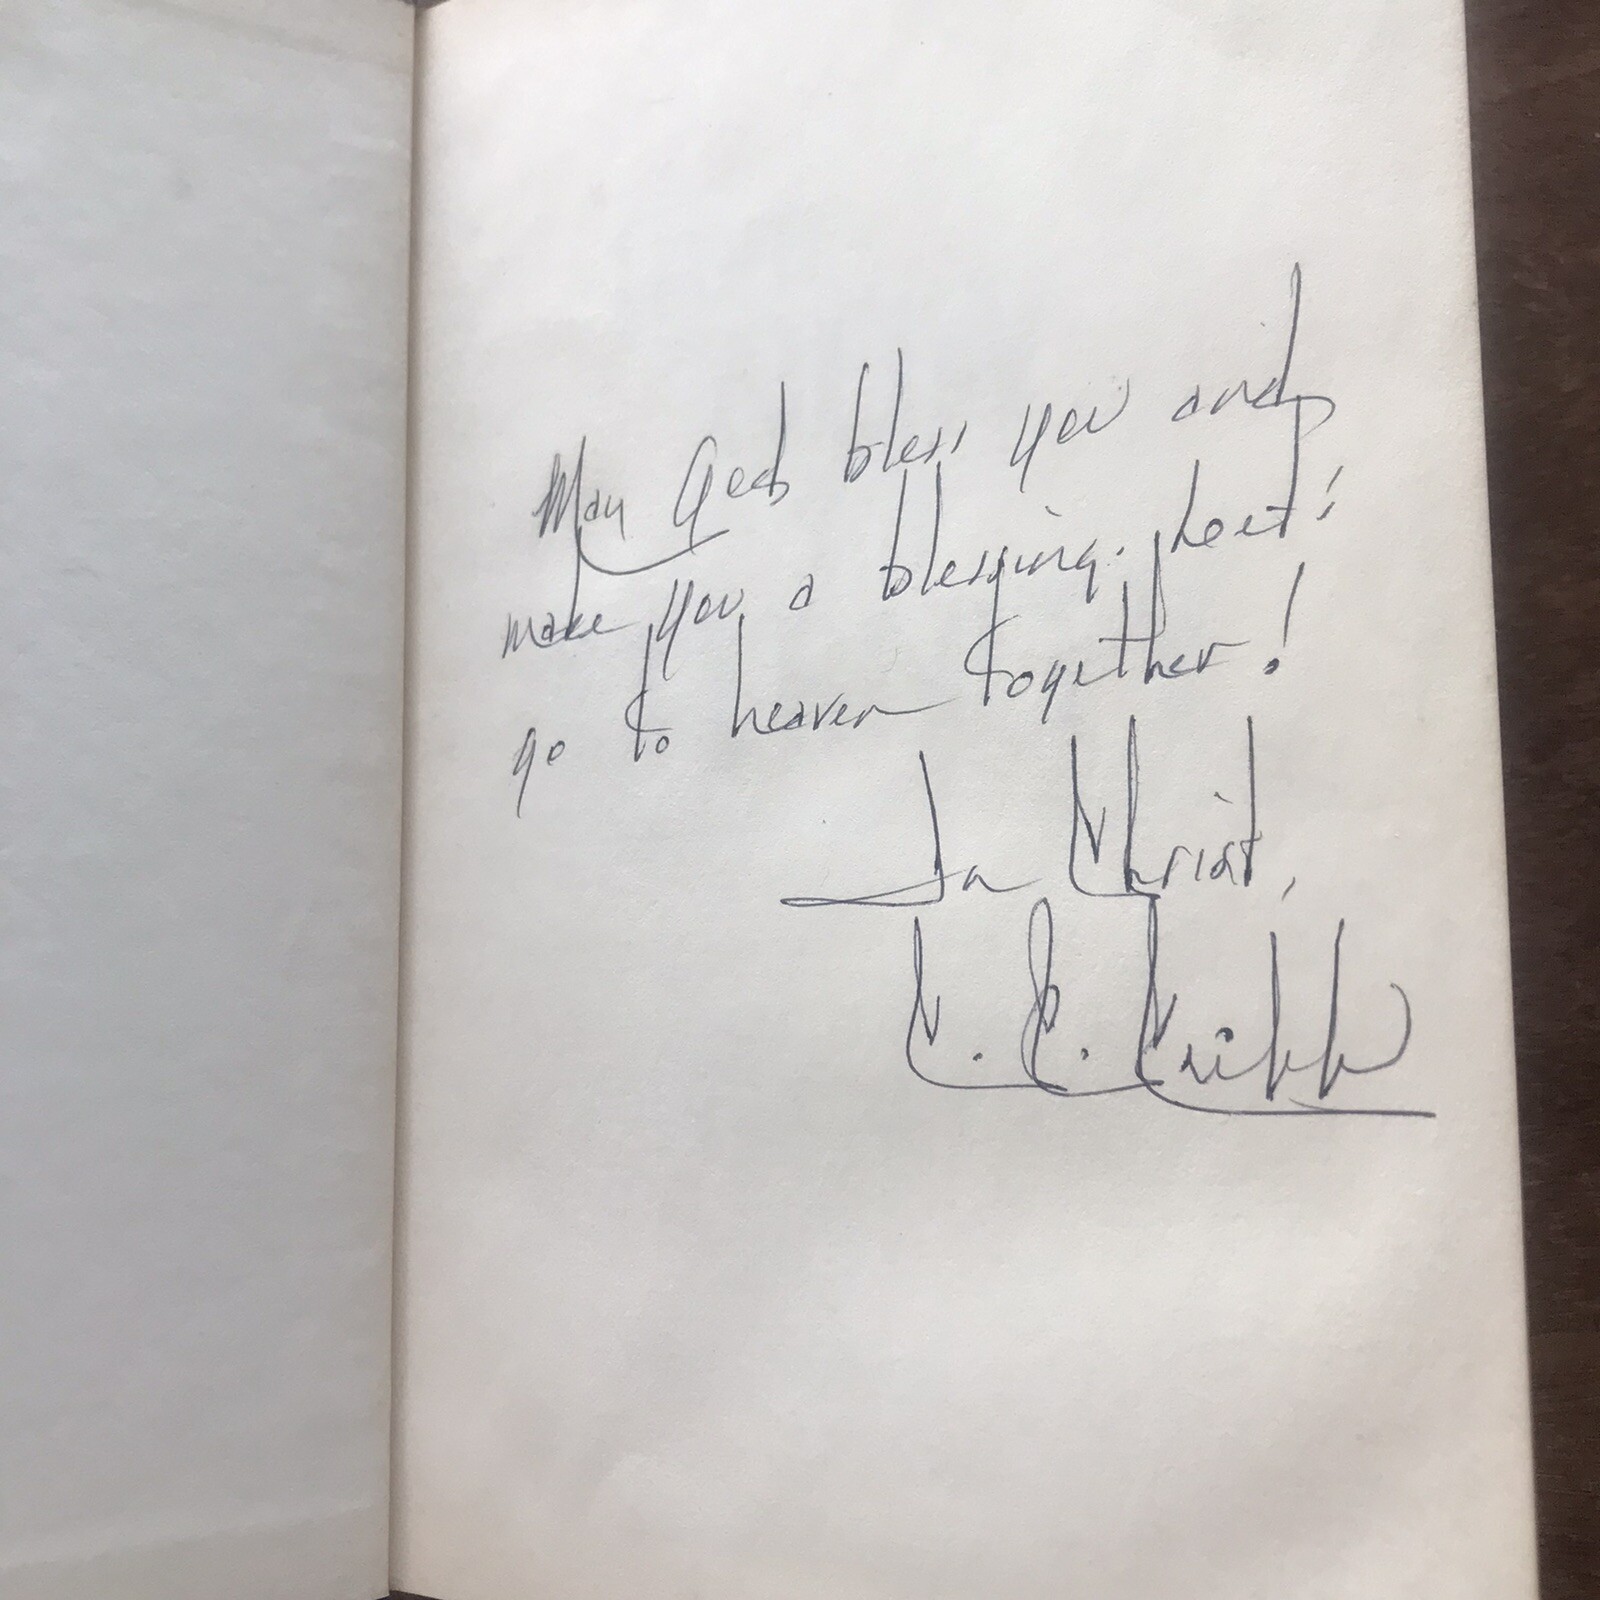 May God bless you and
make you a blessing. Let's
go to heaven together!
In Christ,
C. C. Cribb